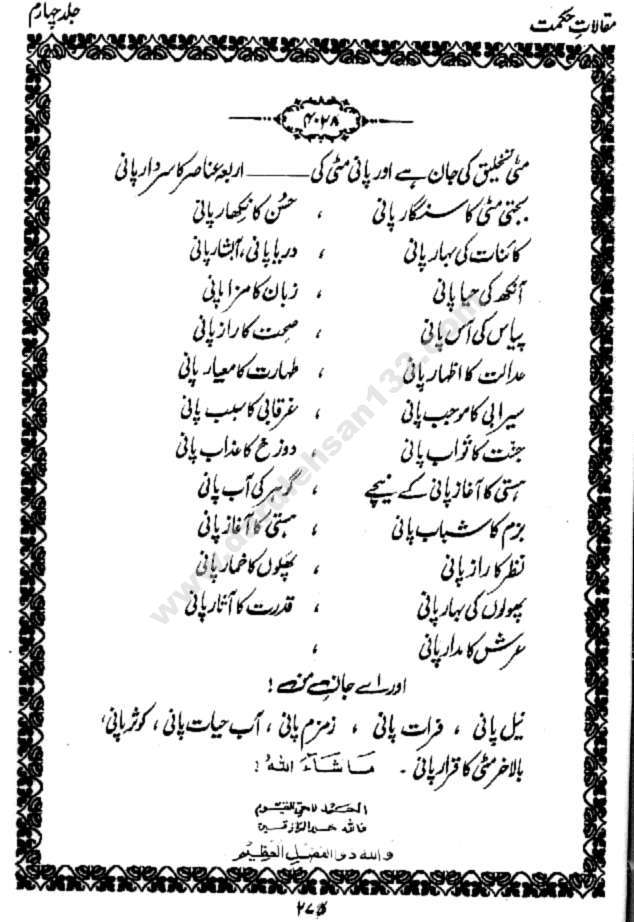 مقالاتِ حکمت
جلد چہارم
۴۰۲۸
مٹی تخلیق کی جان ہے اور پانی مٹی کی ______ اربعہ عناصر کا سردار پانی
بجتی مٹی کا سنگار پانی ، حُسن کا نِکھار پانی
کائنات کی بہار پانی ، دریا پانی، آبشار پانی
آنکھ کی حیا پانی ، زبان کا مزا پانی
پیاس کی آس پانی ، صحت کا راز پانی
عدالت کا اظہار پانی ، طہارت کا معیار پانی
سیرابی کا موجب پانی ، غرقابی کا سبب پانی
جنّت کا ثواب پانی ، دوزخ کا عذاب پانی
ہستی کا آغاز پانی کے نیچے ، گوہر کی آب پانی
بزم کا شباب پانی ، ہستی کا آغاز پانی
نظر کا راز پانی ، پھلوں کا خمار پانی
پھولوں کی بہار پانی ، قدرت کا آثار پانی
عرش کا مدار پانی ،
اور اے جانِ من !
نیل پانی ، فرات پانی ، زمزم پانی ، آب حیات پانی ، کوثر پانی ،
بالآخر مٹی کا قرار پانی ۔ مَا شَآءَ اللّٰهُ !
الحمد للحی القیوم
فاللہ خیر الرازقین
واللہ ذو الفضل العظیم
www.darulehsan132.com